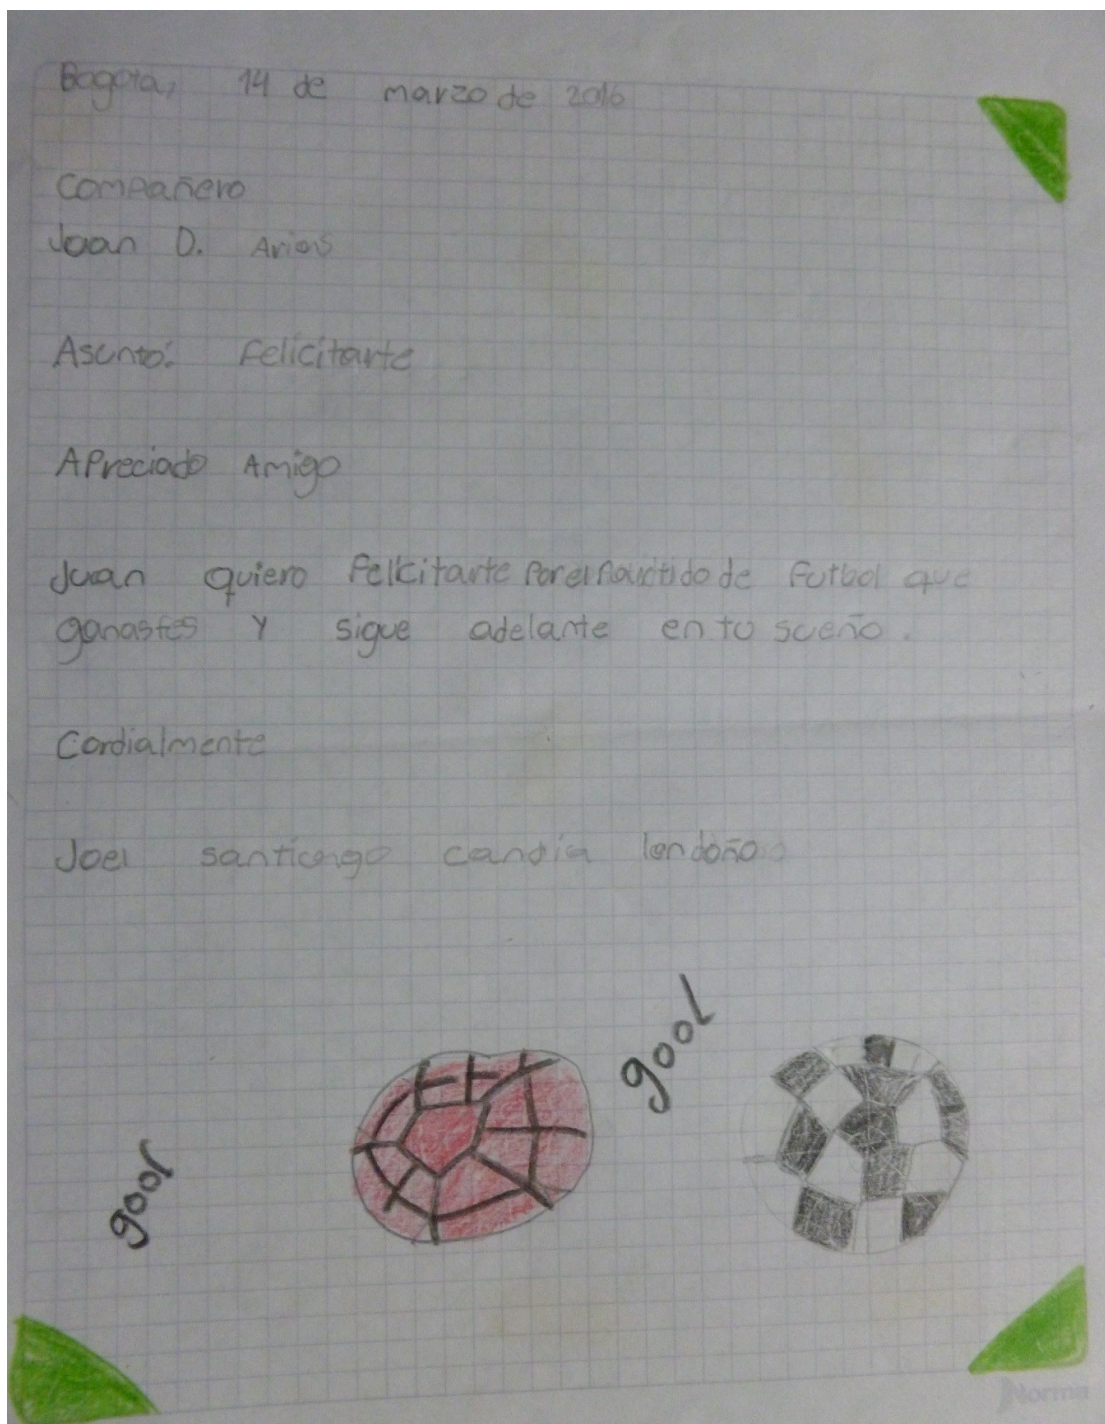 Bogota, 14 de marzo de 2016
Compañero
Juan D. Arias
Asunto: Felicitarte
Apreciado Amigo
Juan quiero Felicitarte por el partido de Futbol que
ganastes y sigue adelante en tu sueño.
Cordialmente
Joel santiago candia londoño
gool
gool
Norma